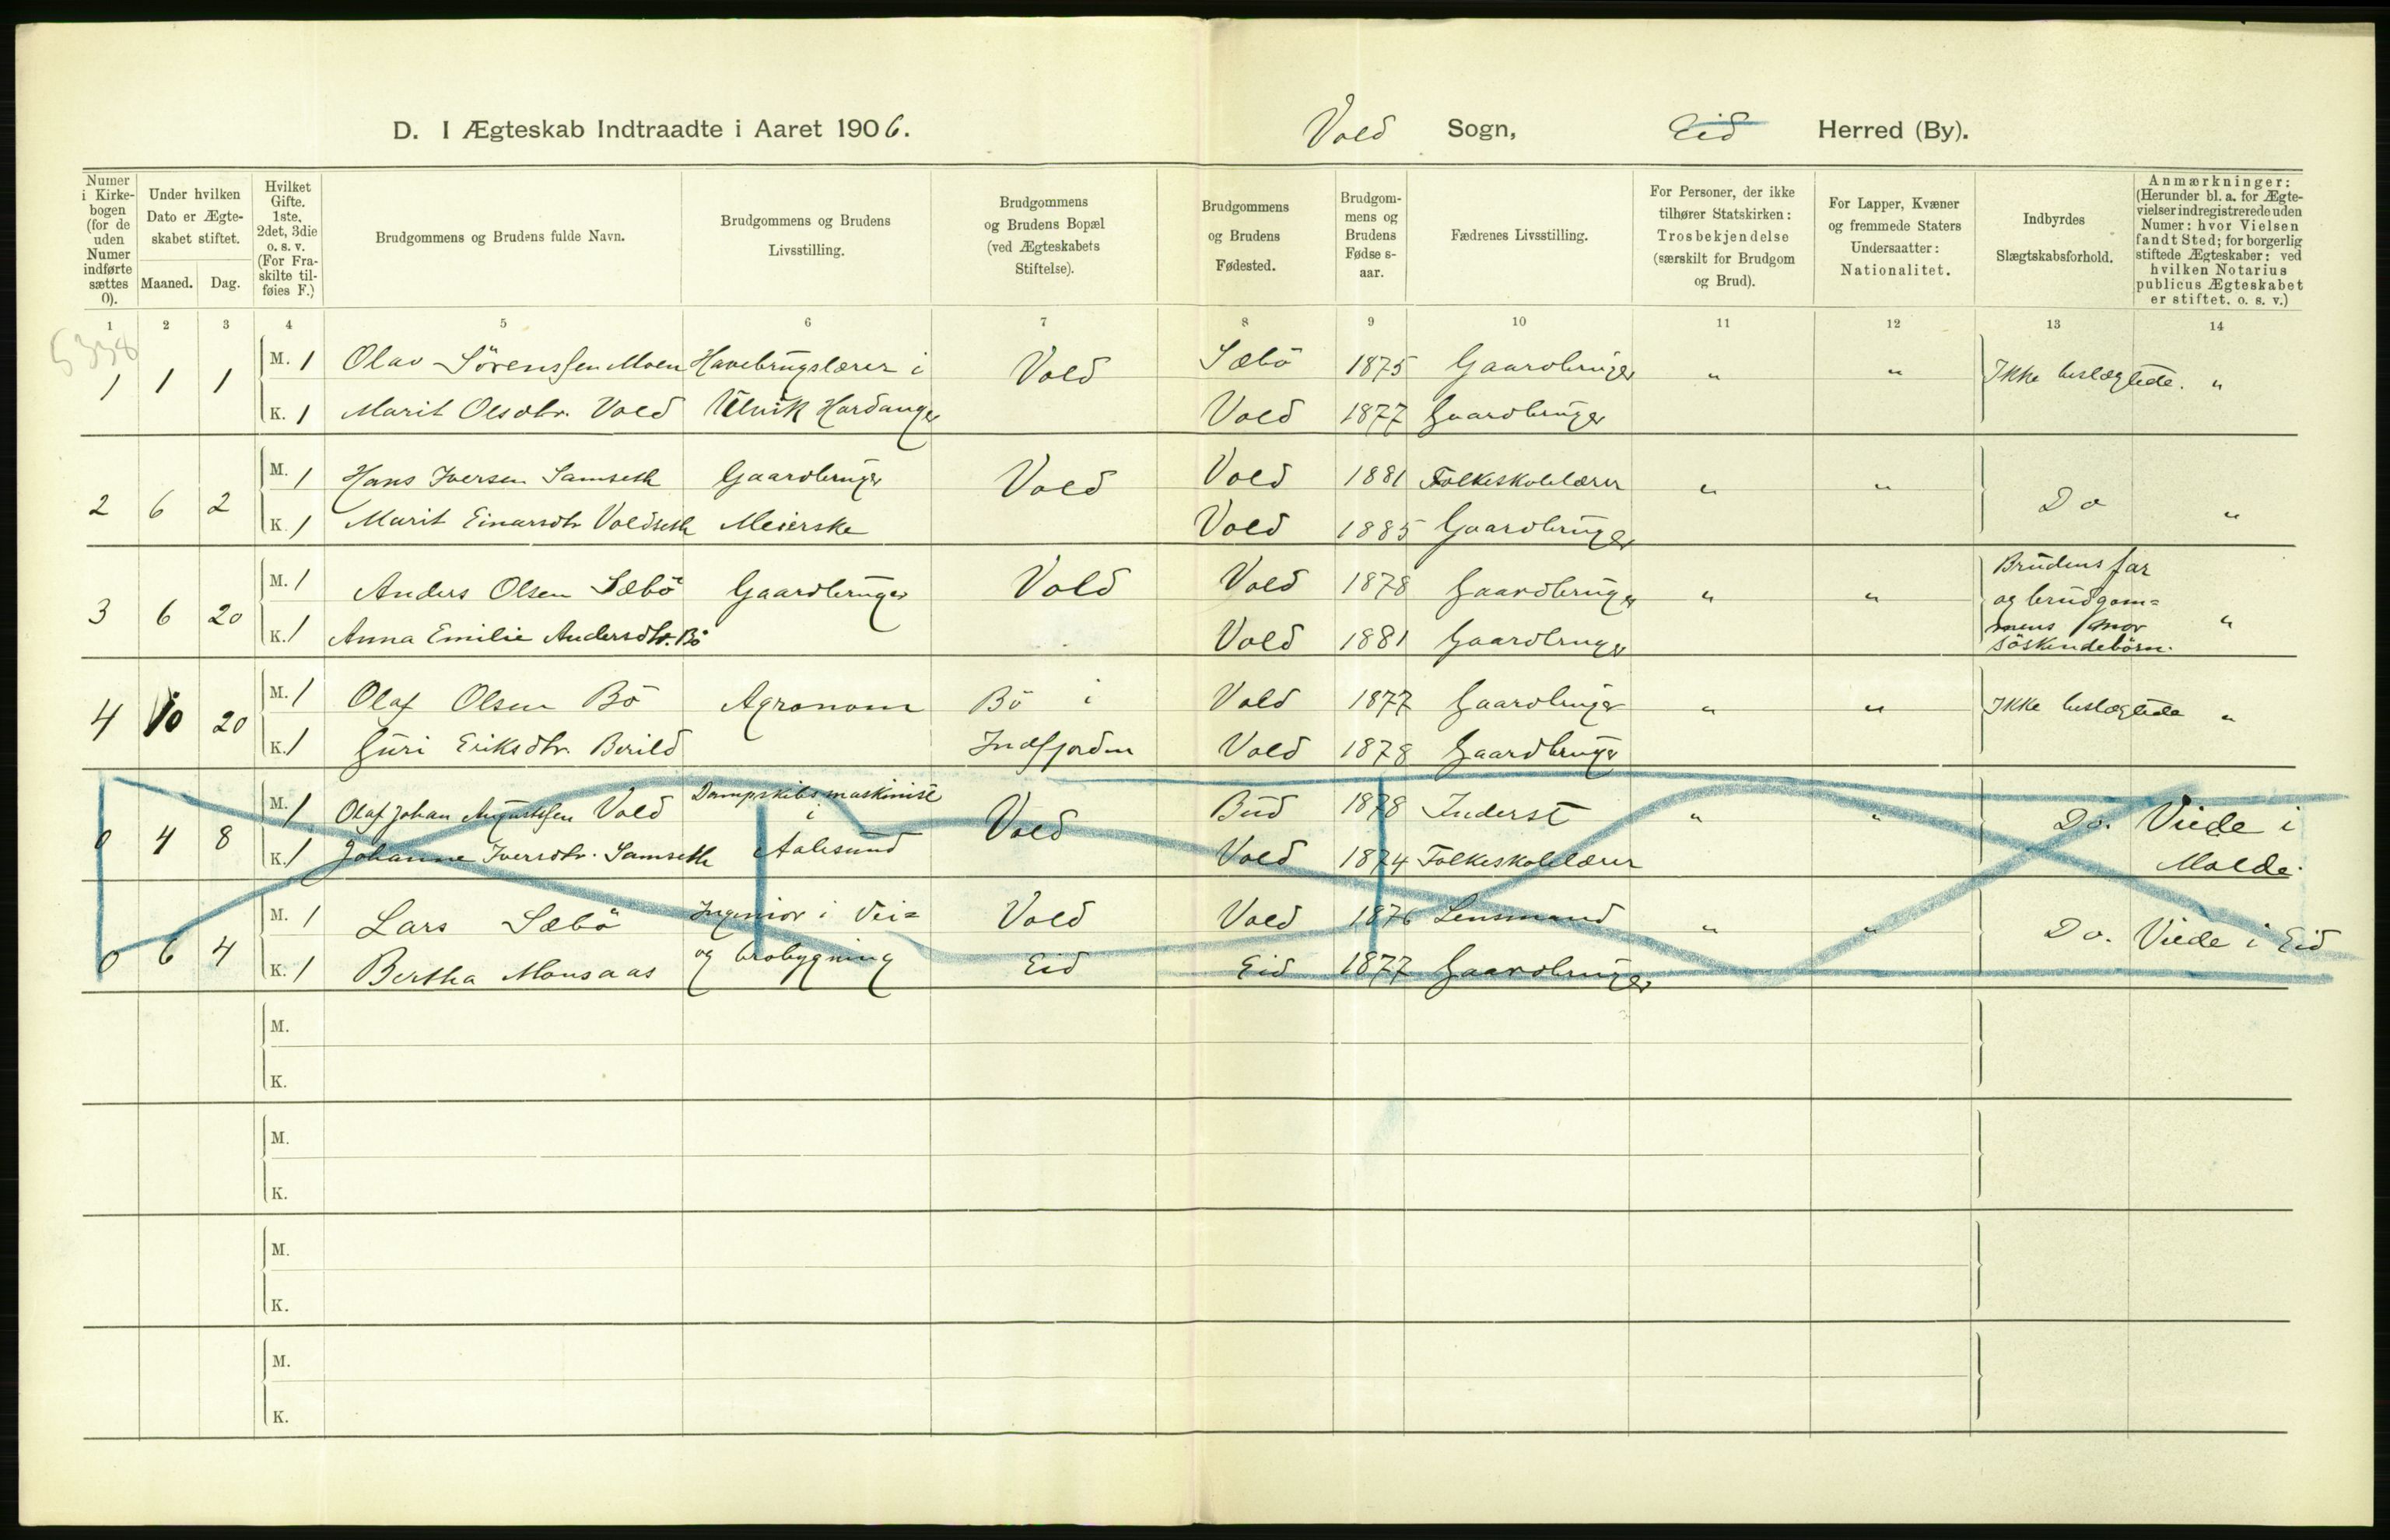 D. I Ægteskab Indtraadte i Aaret 1906. Vold Sogn, Eid Herred (By).
Numer i Kirke-bogen (for de uden Numer indførte sættes 0).
Under hvilken Dato er Ægte-skabet stiftet.
Maaned. Dag.
Hvilket Gifte. 1ste, 2det, 3die o. s. v. (For Fra-skilte til-føies F.)
Brudgommens og Brudens fulde Navn.
Brudgommens og Brudens Livsstilling.
Brudgommens og Brudens Bopæl (ved Ægteskabets Stiftelse).
Brudgommens og Brudens Fødested.
Brudgom-mens og Brudens Fødse s-aar.
Fædrenes Livsstilling.
For Personer, der ikke tilhører Statskirken: Trosbekjendelse (særskilt for Brudgom og Brud).
For Lapper, Kvæner og fremmede Staters Undersaatter: Nationalitet.
Indbyrdes Slægtskabsforhold.
Anmærkninger: (Herunder bl. a. for Ægte-vielser indregistrerede uden Numer: hvor Vielsen fandt Sted; for borgerlig stiftede Ægteskaber: ved hvilken Notarius publicus Ægteskabet er stiftet, o. s. v.)
1 2 3 4 5 6 7 8 9 10 11 12 13 14
5338
1 1 1 M. 1 Olav Sörenssen Moen Havebrugslærer i Vold Sæbö 1875 Gaardbruger " " Ikke beslægtede. "
K. 1 Marit Olsdtr. Vold Ulvik Hardanger Vold 1877 Gaardbruger
2 6 2 M. 1 Hans Iversen Samseth Gaardbruger Vold Vold 1881 Folkeskolelærer " " Do "
K. 1 Marit Einarsdtr Voldseth Meierske Vold 1885 Gaardbruger
3 6 20 M. 1 Anders Olsen Sæbö Gaardbruger Vold Vold 1878 Gaardbruger " " Brudens far og brudgom= mens mor söskendebörn. "
K. 1 Anna Emilie Andersdtr. Bö Vold 1881 Gaardbruger
4 10 20 M. 1 Olaf Olsen Bö Agronom Bö i Vold 1877 Gaardbruger " " Ikke beslægtede "
K. 1 Guri Eriksdtr. Berild Indfjorden Vold 1878 Gaardbruger
0 4 8 M. 1 Olaf Johan Augustsen Vold Dampskibsmaskinist i Vold Bud 1878 Inderst " " Do. Viede i
K. 1 Johanne Iversdtr. Samseth Aalesund Vold 1874 Folkeskolelærer Molde.
0 6 4 M. 1 Lars Sæbö Ingeniør i Vei= Vold Vold 1876 Lensmand " " Do. Viede i Eid
K. 1 Bertha Monsaas og brobygning Eid Eid 1877 Gaardbruger
M.
K.
M.
K.
M.
K.
M.
K.